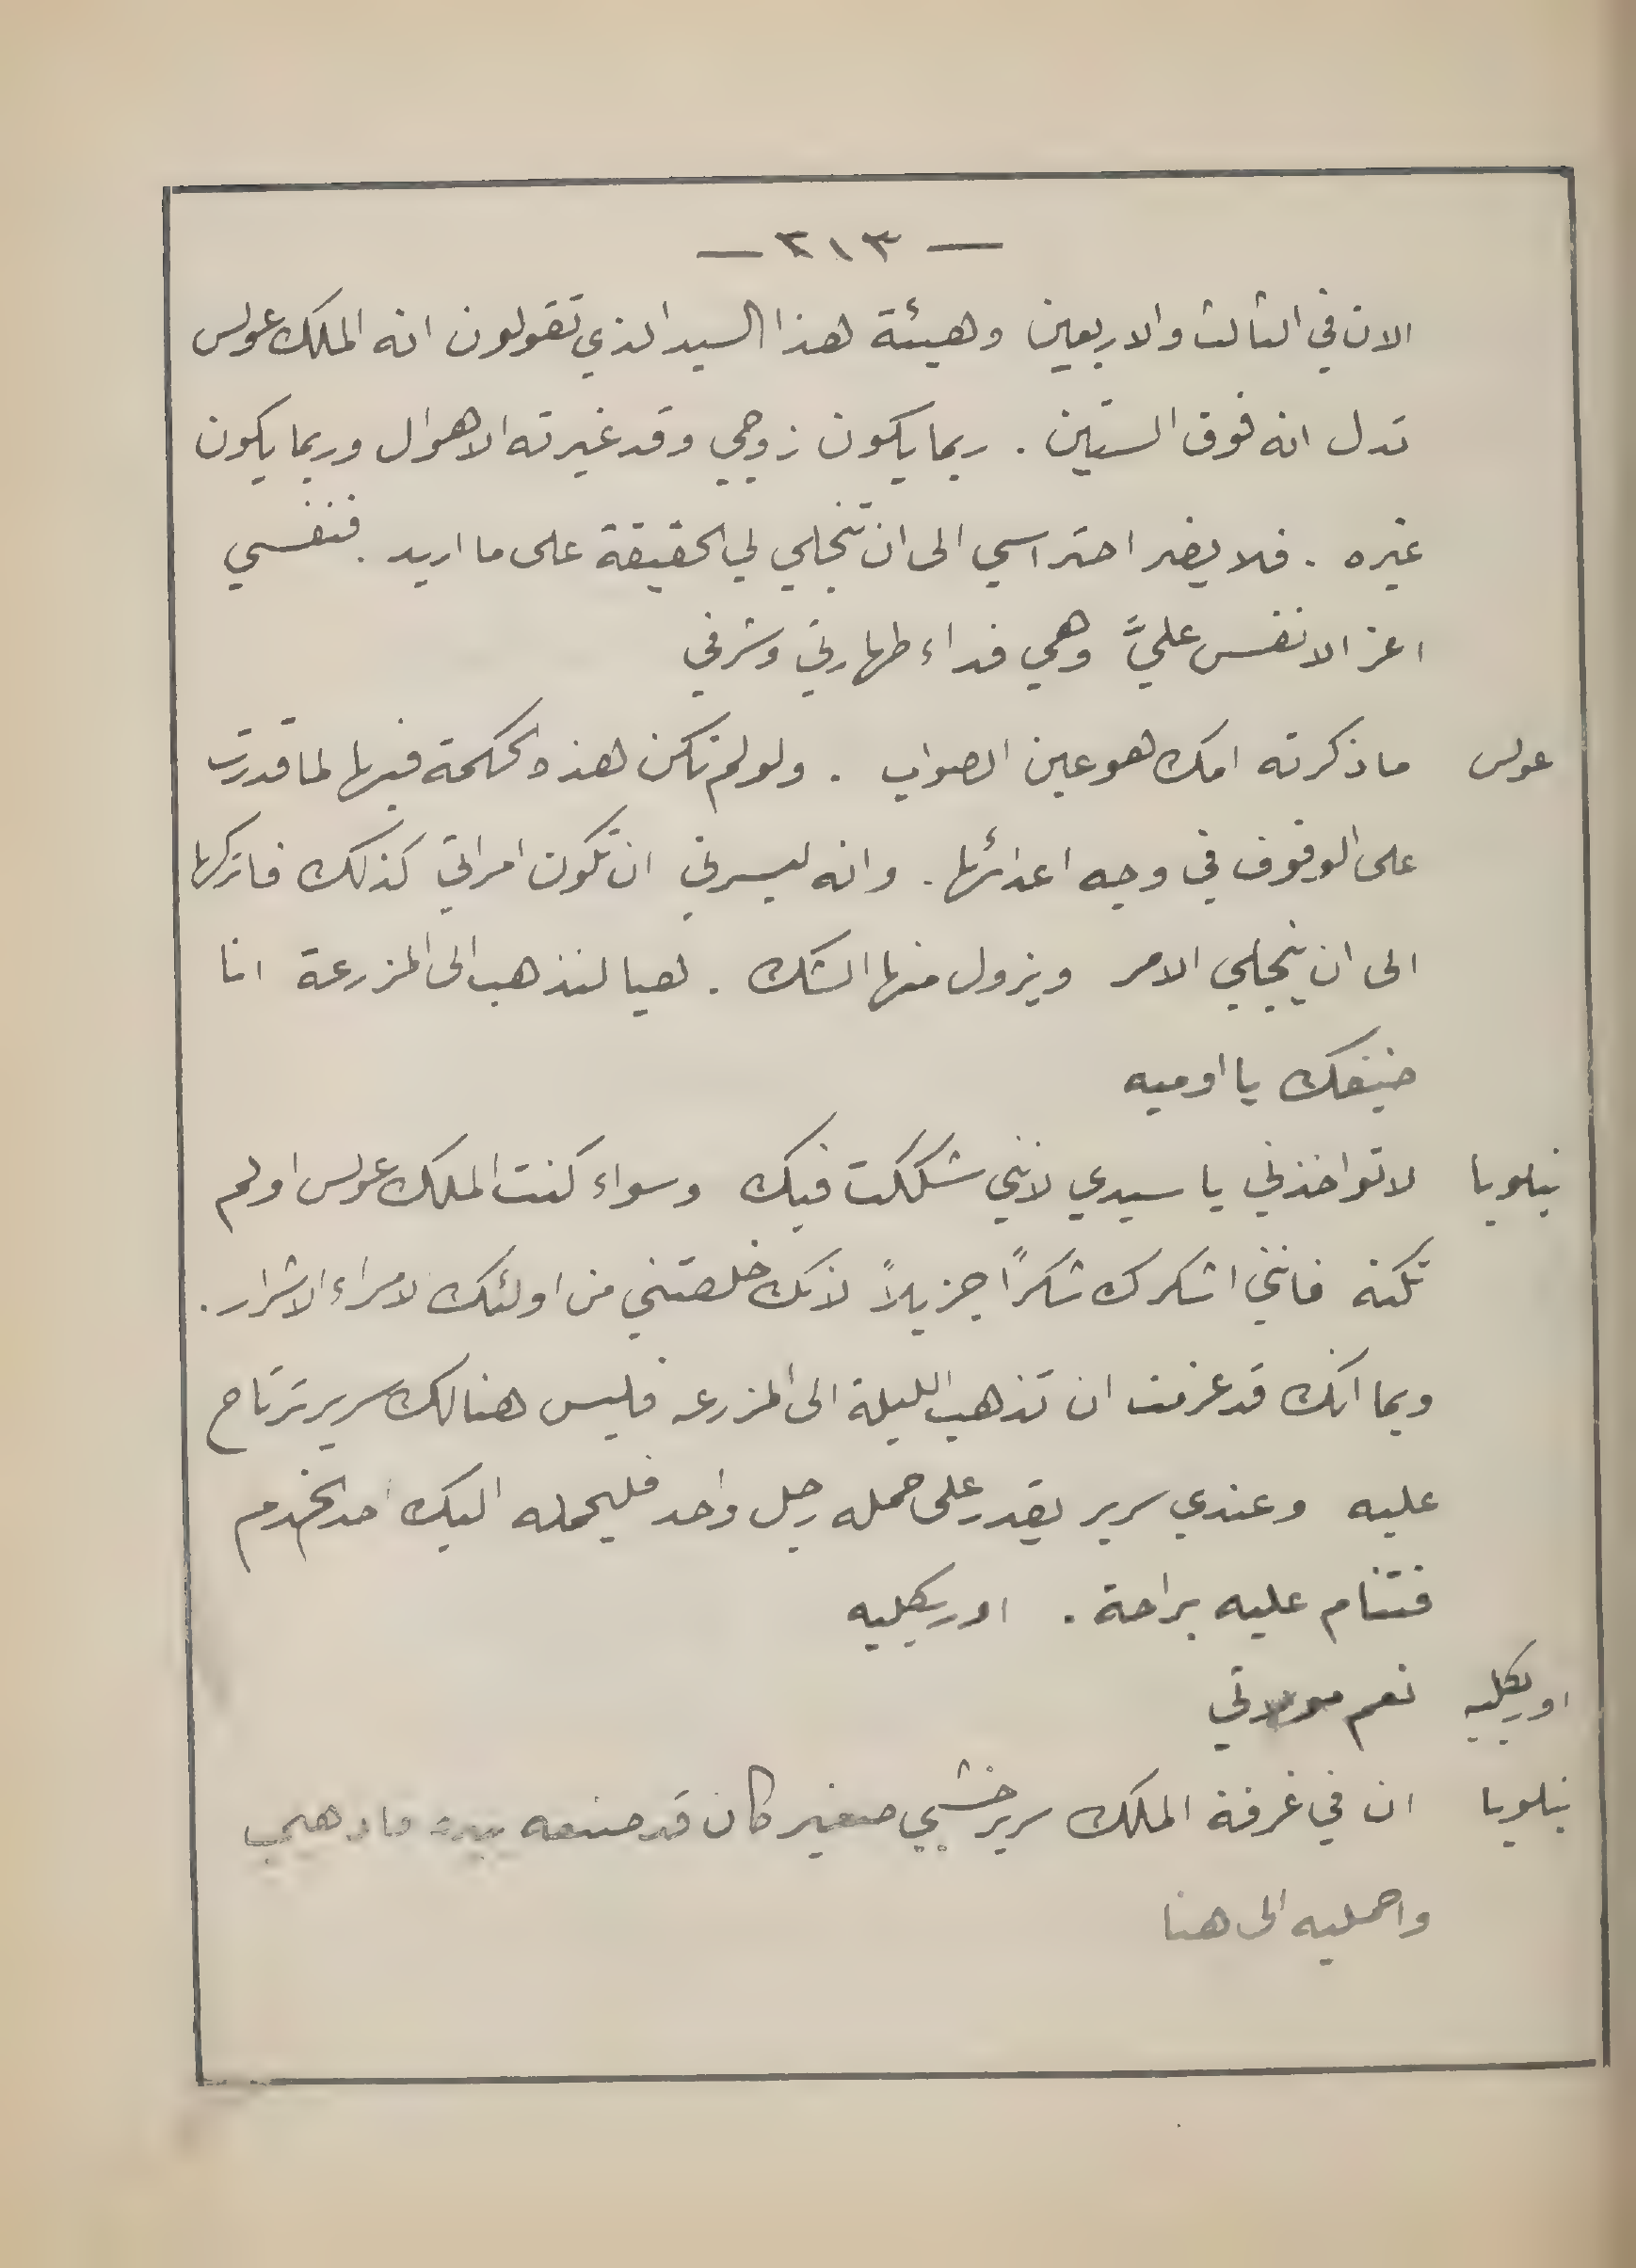 — ٣١٣ —
الان في الثالث والاربعين وهيئة هذا السيد الذي تقولون انه الملك عولس
تدل انه فوق الستين . ربما يكون زوجي وقد غيرته الاهوال وربما يكون
غيره . فلا يضر احتراسي الى ان تنجلي لي الحقيقة على ما اريد . فنفسي
اعز الانفس عليَّ وهي فداء طهارتي وشرفي
عولس ما ذكرته امك هو عين الصواب . ولو لم تكن هذه الحكمة فيها لما قدرت
على الوقوف في وجه اعدائها . وانه ليسرني ان تكون امراتي كذلك فاتركها
الى ان ينجلي الامر ويزول منها الشك . هيا لنذهب الى المزرعة انا
ضيفك يا اوميه
نيلوبا لا تواخذني يا سيدي لانني شككت فيك وسواء كنت الملك عولس اولم
تكنه فانني اشكرك شكرًا جزيلاً لانك خلصتني من اولئك الامراء الاشرار .
وبما انك قد عزمت ان تذهب الليلة الى المزرعه فليس هنالك سرير ترتاح
عليه وعندي سرير يقدر على حمله رجل واحد فليحمله اليك احد الخدم
فتنام عليه براحة . اوريكليه
اوريكليه نعم مولاتي
نيلوبا ان في غرفة الملك سرير خشبي صغير كان قد صنعه بيده فاذهبي
واحمليه الى هنا